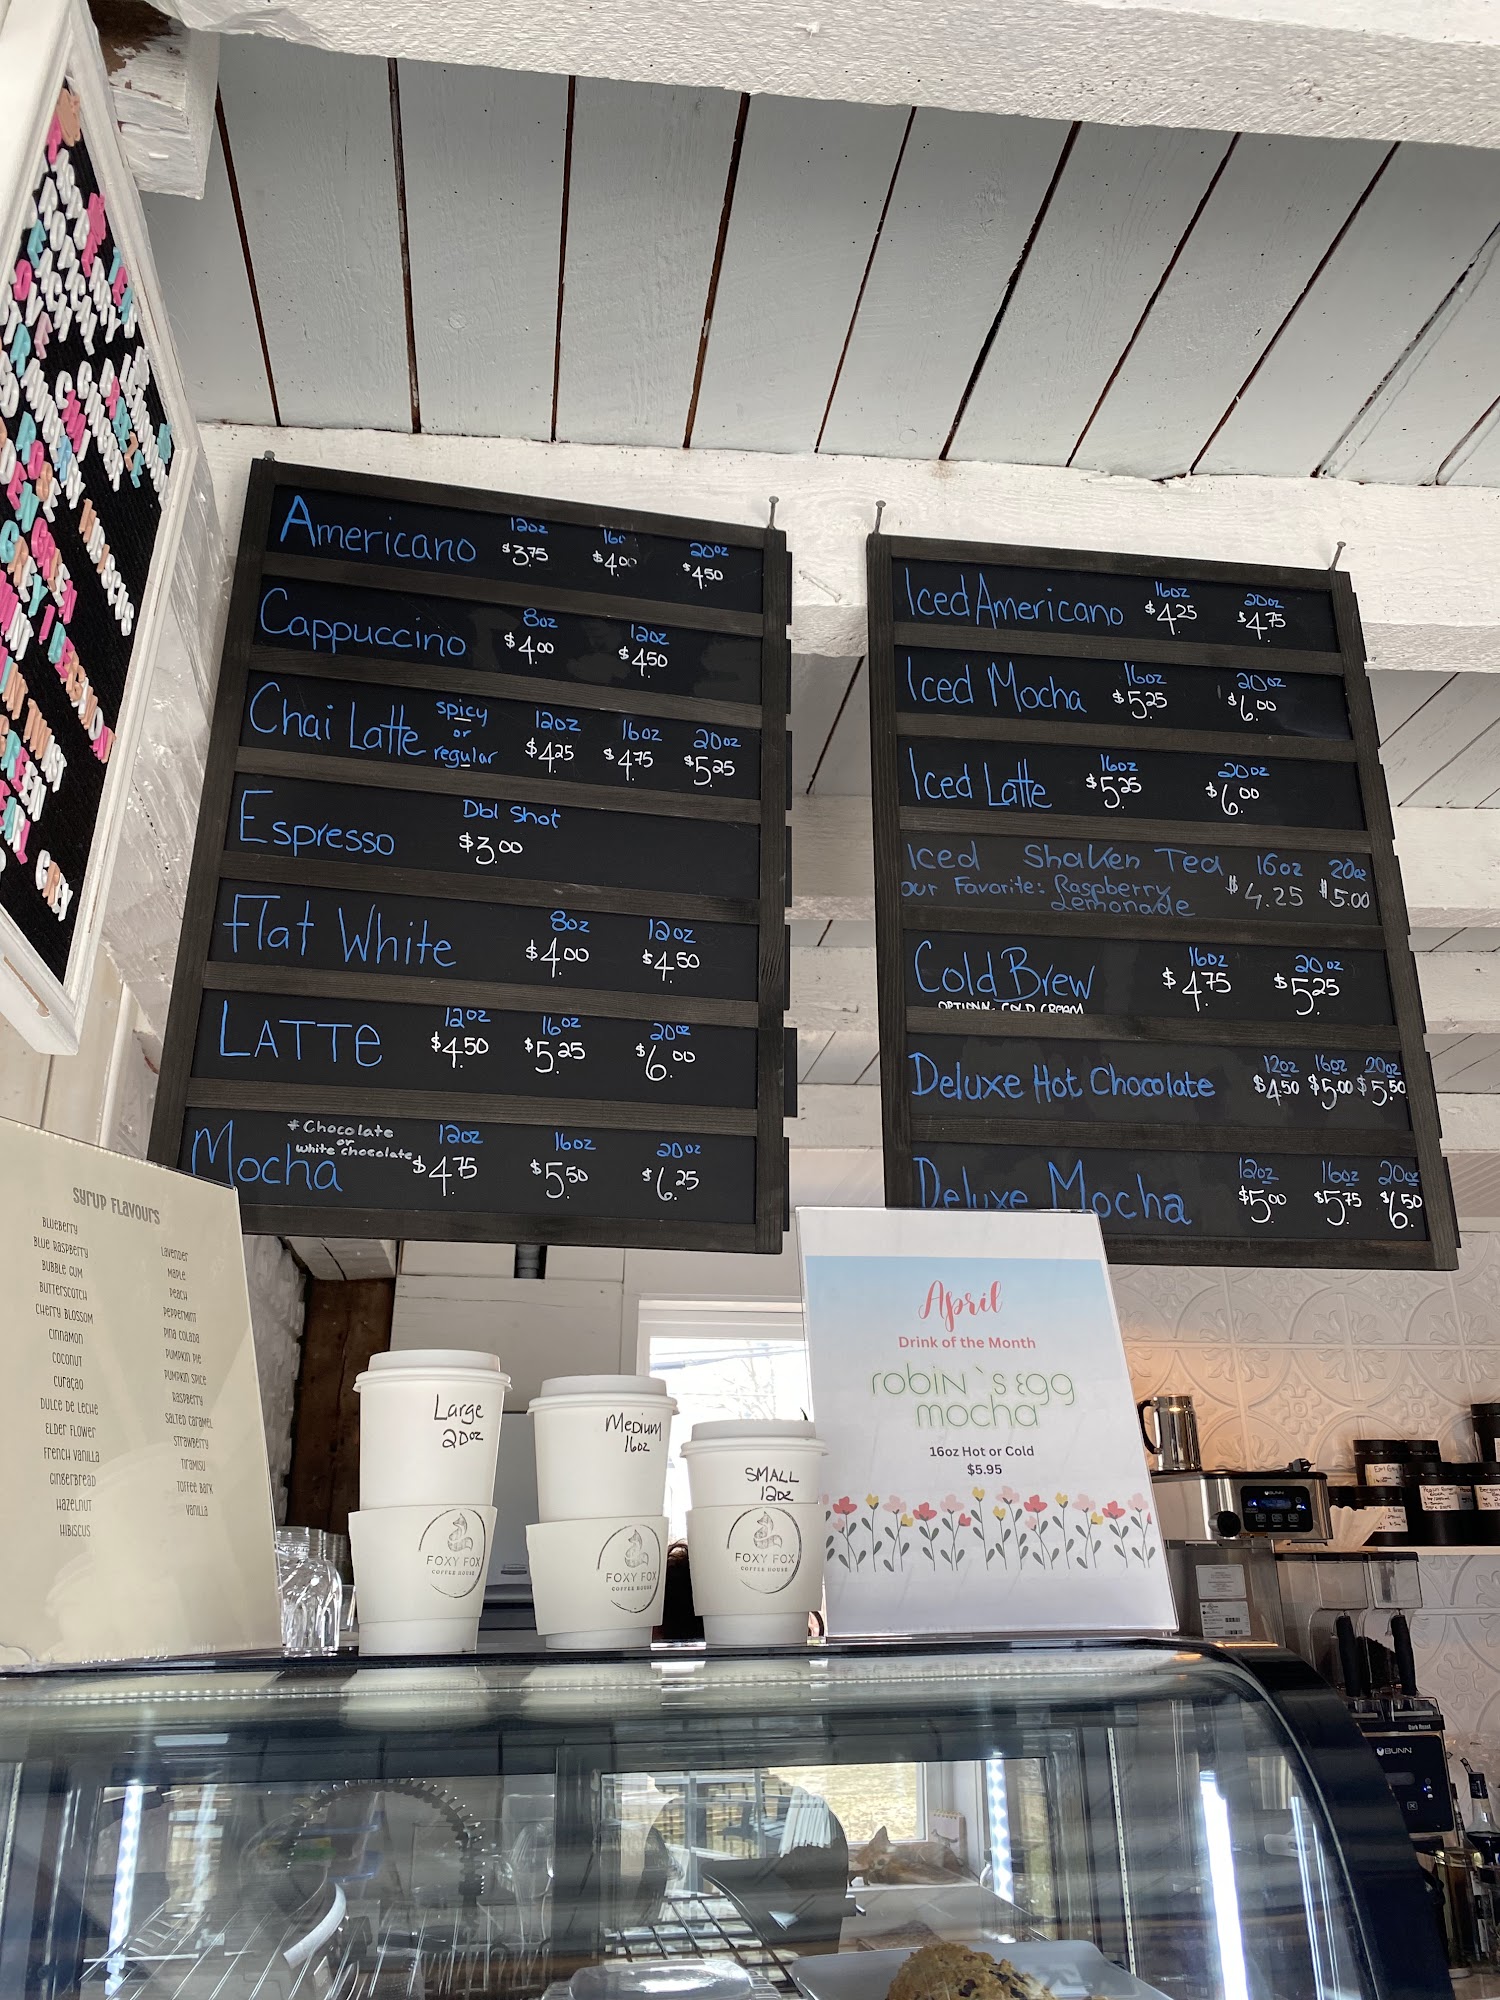 Americano 12oz 16oz 20oz
$3.75 $4.00 $4.50
Cappuccino 8oz 12oz
$4.00 $4.50
Chai Latte spicy or regular 12oz 16oz 20oz
$4.25 $4.75 $5.25
Espresso Dbl Shot
$3.00
Flat White 8oz 12oz
$4.00 $4.50
LATTE 12oz 16oz 20oz
$4.50 $5.25 $6.00
Mocha *Chocolate or white chocolate 12oz 16oz 20oz
$4.75 $5.50 $6.25
Iced Americano 16oz 20oz
$4.25 $4.75
Iced Mocha 16oz 20oz
$5.25 $6.00
Iced Latte 16oz 20oz
$5.25 $6.00
Iced Shaken Tea 16oz 20oz
our Favorite: Raspberry $4.25 $5.00
Lemonade
Cold Brew 16oz 20oz
$4.75 $5.25
OPTIONAL COLD CREAM
Deluxe Hot Chocolate 12oz 16oz 20oz
$4.50 $5.00 $5.50
Deluxe Mocha 12oz 16oz 20oz
$5.00 $5.75 $6.50
Syrup Flavours
Blueberry
Blue Raspberry
Bubble Gum
Butterscotch
Cherry Blossom
Cinnamon
Coconut
Curaçao
Dulce de Leche
Elder Flower
French Vanilla
Gingerbread
Hazelnut
Hibiscus
Lavender
Maple
Peach
Peppermint
Pina Colada
Pumpkin Pie
Pumpkin Spice
Raspberry
Salted Caramel
Strawberry
Tiramisu
Toffee Bark
Vanilla
Large
20oz
FOXY FOX
COFFEE HOUSE
Medium
16oz
FOXY FOX
COFFEE HOUSE
SMALL
12oz
FOXY FOX
COFFEE HOUSE
April
Drink of the Month
robin`s egg
mocha
16oz Hot or Cold
$5.95
BUNN
Dark Roast
BUNN